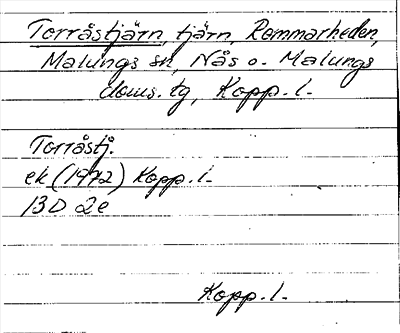 Torråstjärn, tjärn, Rommarheden,
Malungs sn, Nås o. Malungs
doms. tg, Kopp. l.
Torråstj.
ek (1972) Kopp. l.
13D 2e
Kopp. l.